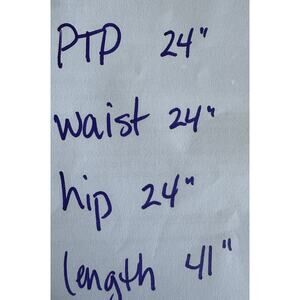 PTP 24"
waist 24"
hip 24"
length 41"